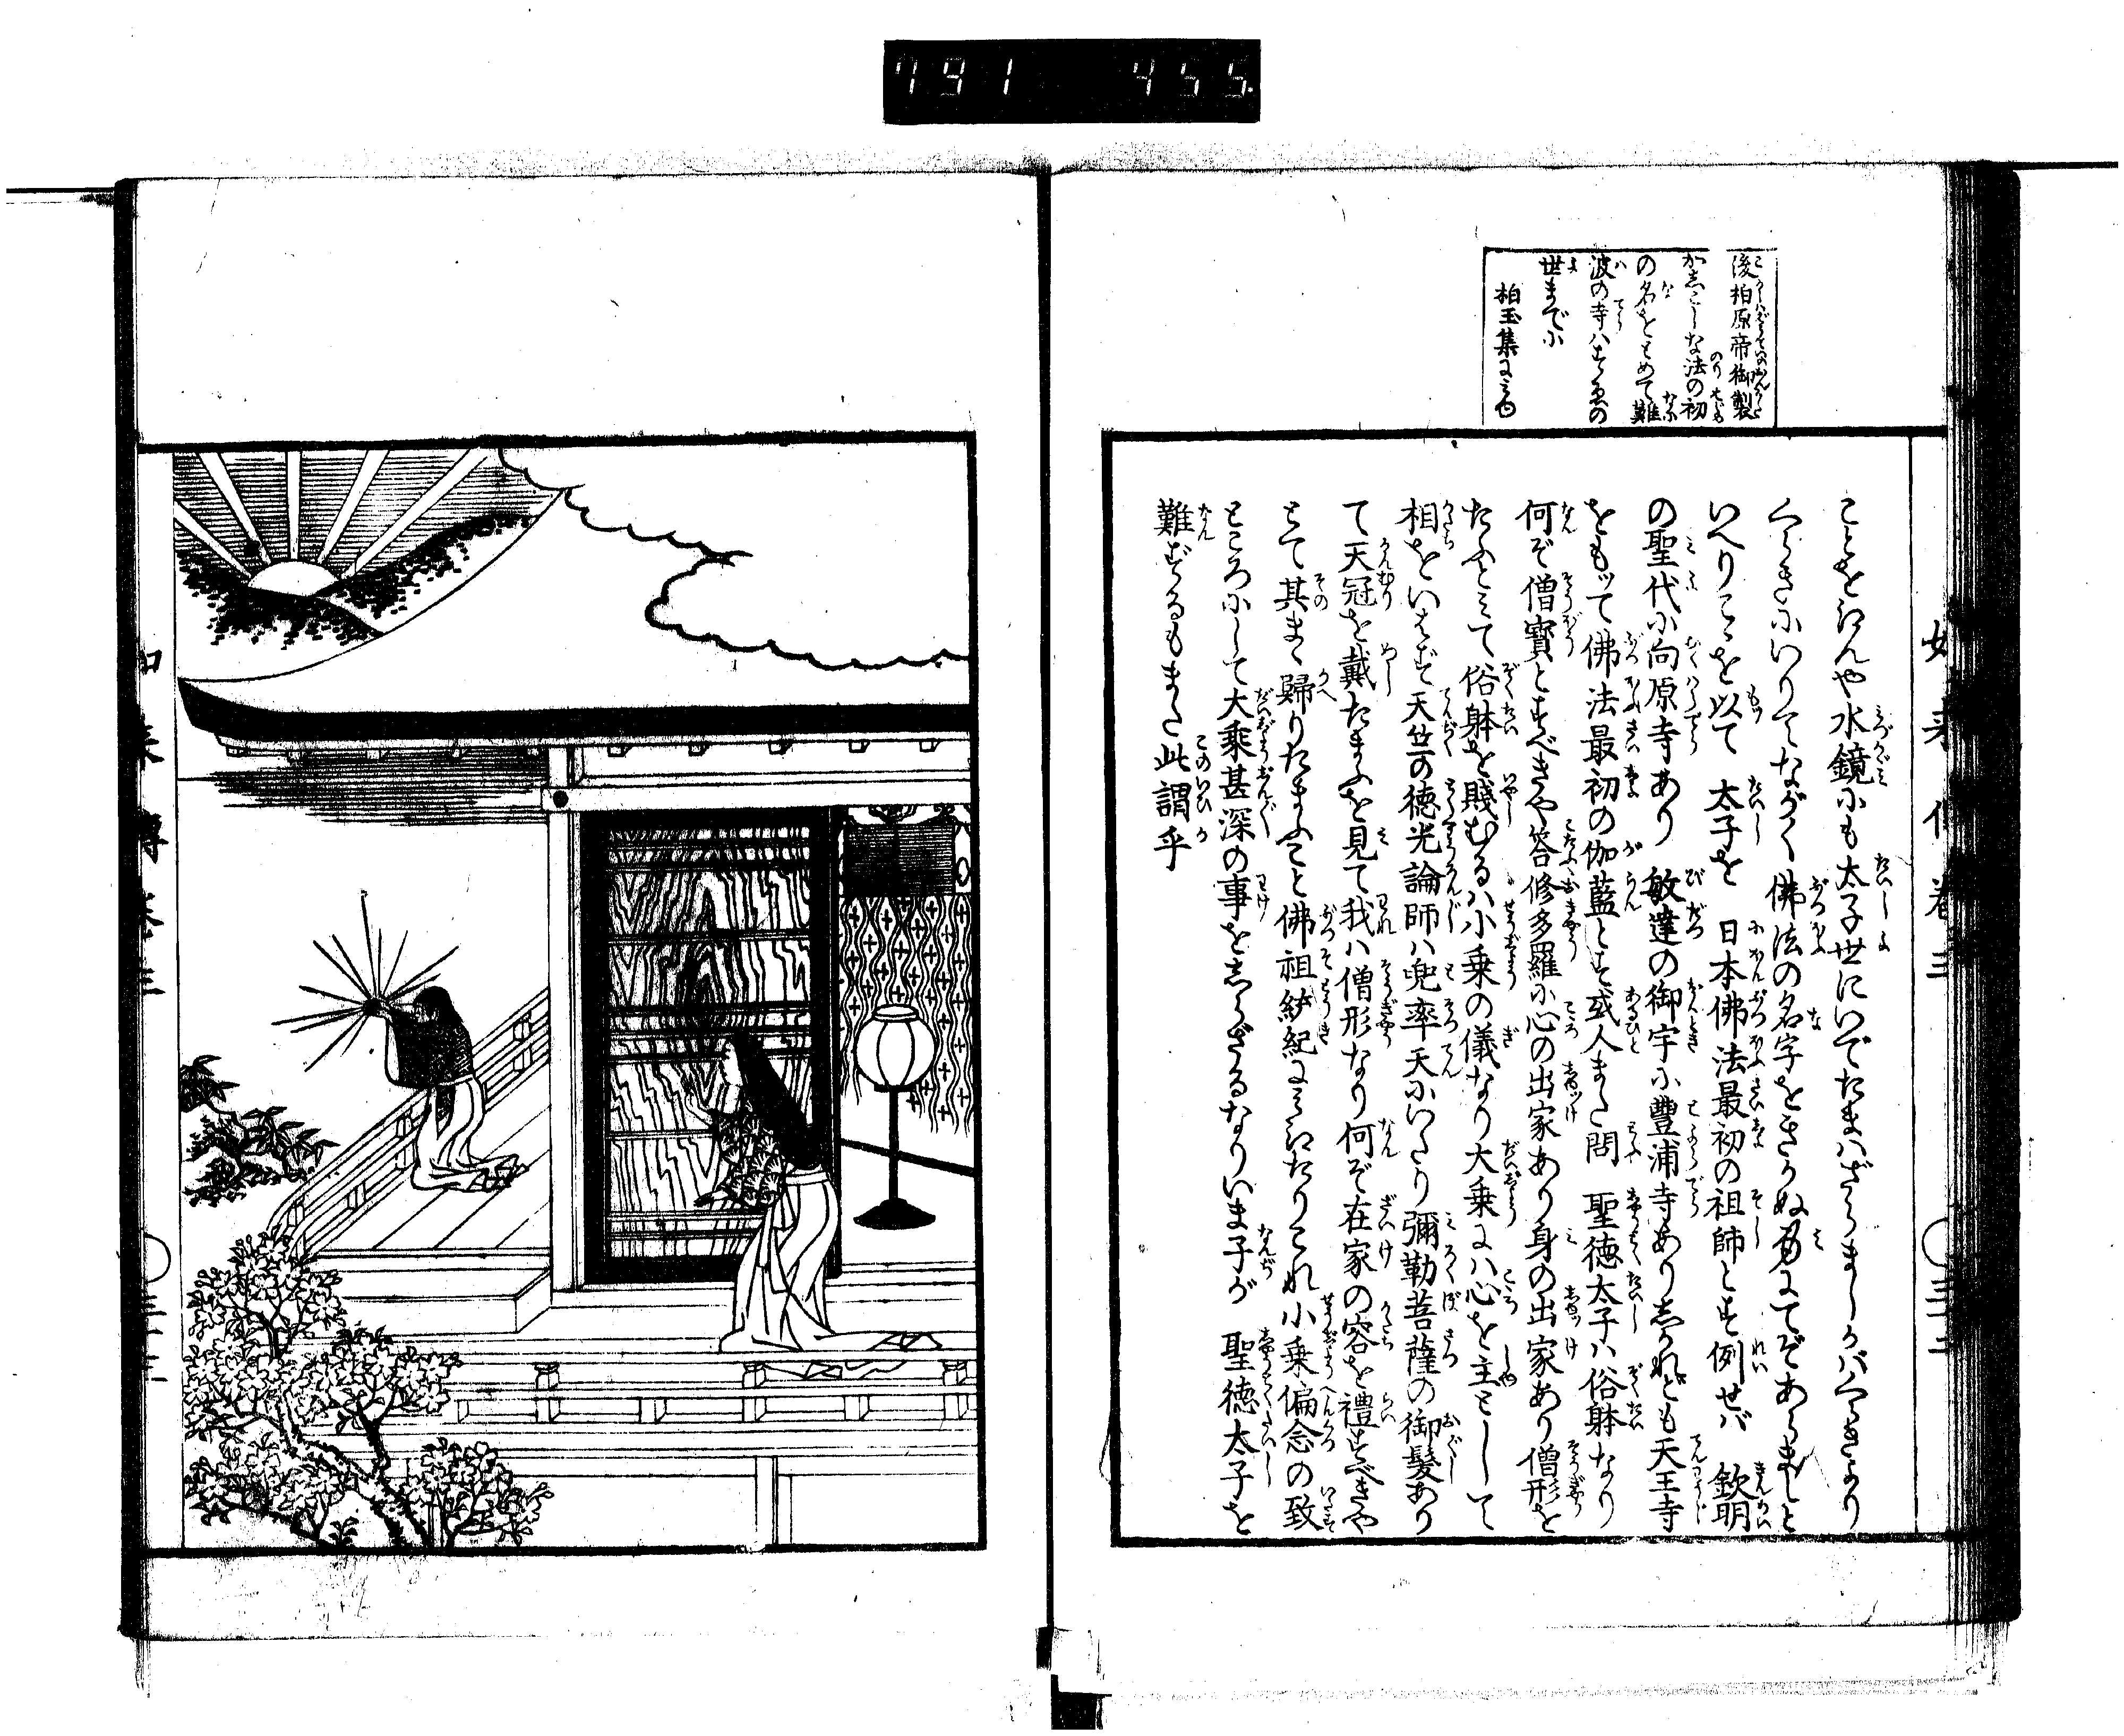 791 455
後柏原帝御製
かしこしな法の初
の名をとめて難
波の寺ハすゑの
世までに
柏玉集にみゆ
ことをえんや水鏡にも太子世にいでたまハざらましかバくらきより
くらきにいりてながく佛法の名字をきかぬ身にてぞあらましと
いへりこゝを以て太子を日本佛法最初の祖師とす例せバ欽明
の聖代に向原寺あり敏達の御宇に豐浦寺ありしかれども天王寺
をもッて佛法最初の伽藍とす或人また問聖徳太子ハ俗躰なり
何ぞ僧寳とすべきや答修多羅に心の出家あり身の出家あり僧形を
たふとみて俗躰を賤むるハ小乗の儀なり大乗にハ心を主として
相をいはず天竺の徳光論師ハ兜率天にいたり彌勒菩薩の御髪あり
て天冠を戴たまふを見て我ハ僧形なり何ぞ在家の容を禮すべきや
とて其まゝ歸りたまふこと佛祖統紀にみえたりこれ小乗偏念の致
ところにして大乘甚深の事をしらざるなりいま子が聖徳太子を
難ずるもまた此謂乎
如来傳卷三
三十三